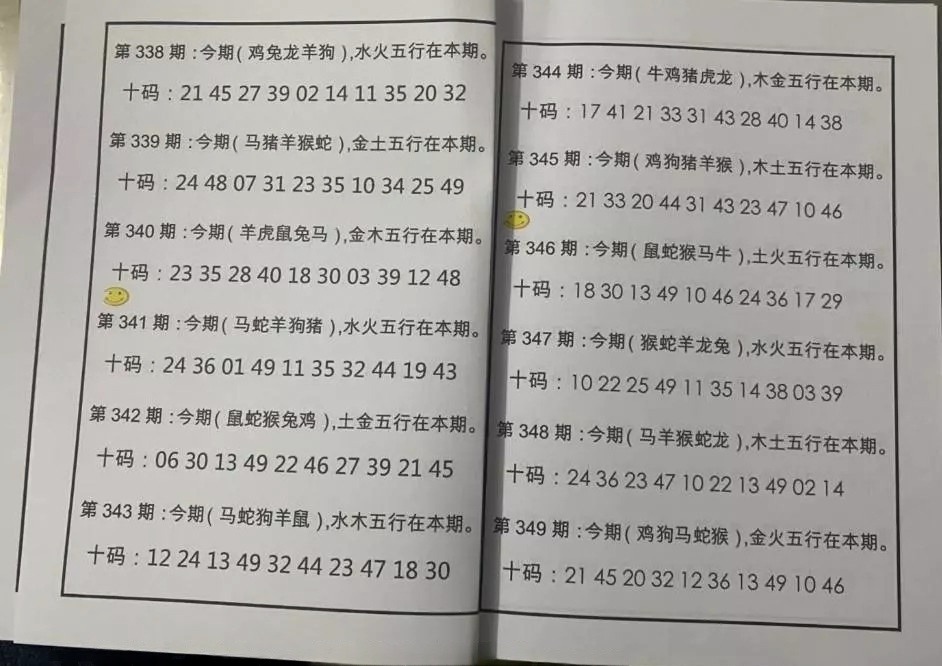 第338期:今期(鸡兔龙羊狗),水火五行在本期。
十码:21 45 27 39 02 14 11 35 20 32
第339期:今期(马猪羊猴蛇),金土五行在本期。
十码:24 48 07 31 23 35 10 34 25 49
第340期:今期(羊虎鼠兔马),金木五行在本期。
十码:23 35 28 40 18 30 03 39 12 48
第341期:今期(马蛇羊狗猪),水火五行在本期。
十码:24 36 01 49 11 35 32 44 19 43
第342期:今期(鼠蛇猴兔鸡),土金五行在本期。
十码:06 30 13 49 22 46 27 39 21 45
第343期:今期(马蛇狗羊鼠),水木五行在本期。
十码:12 24 13 49 32 44 23 47 18 30
第344期:今期(牛鸡猪虎龙),木金五行在本期。
十码:17 41 21 33 31 43 28 40 14 38
第345期:今期(鸡狗猪羊猴),木土五行在本期。
十码:21 33 20 44 31 43 23 47 10 46
第346期:今期(鼠蛇猴马牛),土火五行在本期。
十码:18 30 13 49 10 46 24 36 17 29
第347期:今期(猴蛇羊龙兔),水火五行在本期。
十码:10 22 25 49 11 35 14 38 03 39
第348期:今期(马羊猴蛇龙),木土五行在本期。
十码:24 36 23 47 10 22 13 49 02 14
第349期:今期(鸡狗马蛇猴),金火五行在本期。
十码:21 45 20 32 12 36 13 49 10 46